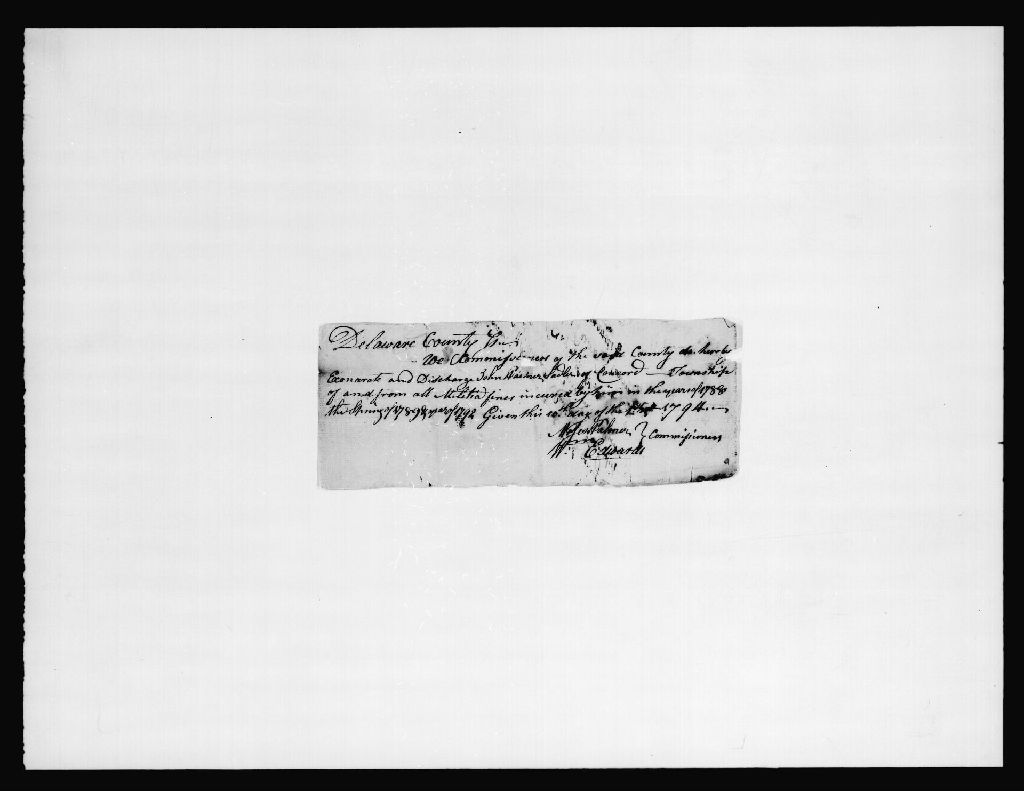 Delaware County Ss.
We Commissioners of the said County do hereby
Exonarate and Discharge John of Concord Township
of and from all Militia fines incured by him in the year of 1788
the Spring of 1789 & year of 1792 Given this day of the 1794
Palmer } Commissioners
Wm. Edwards